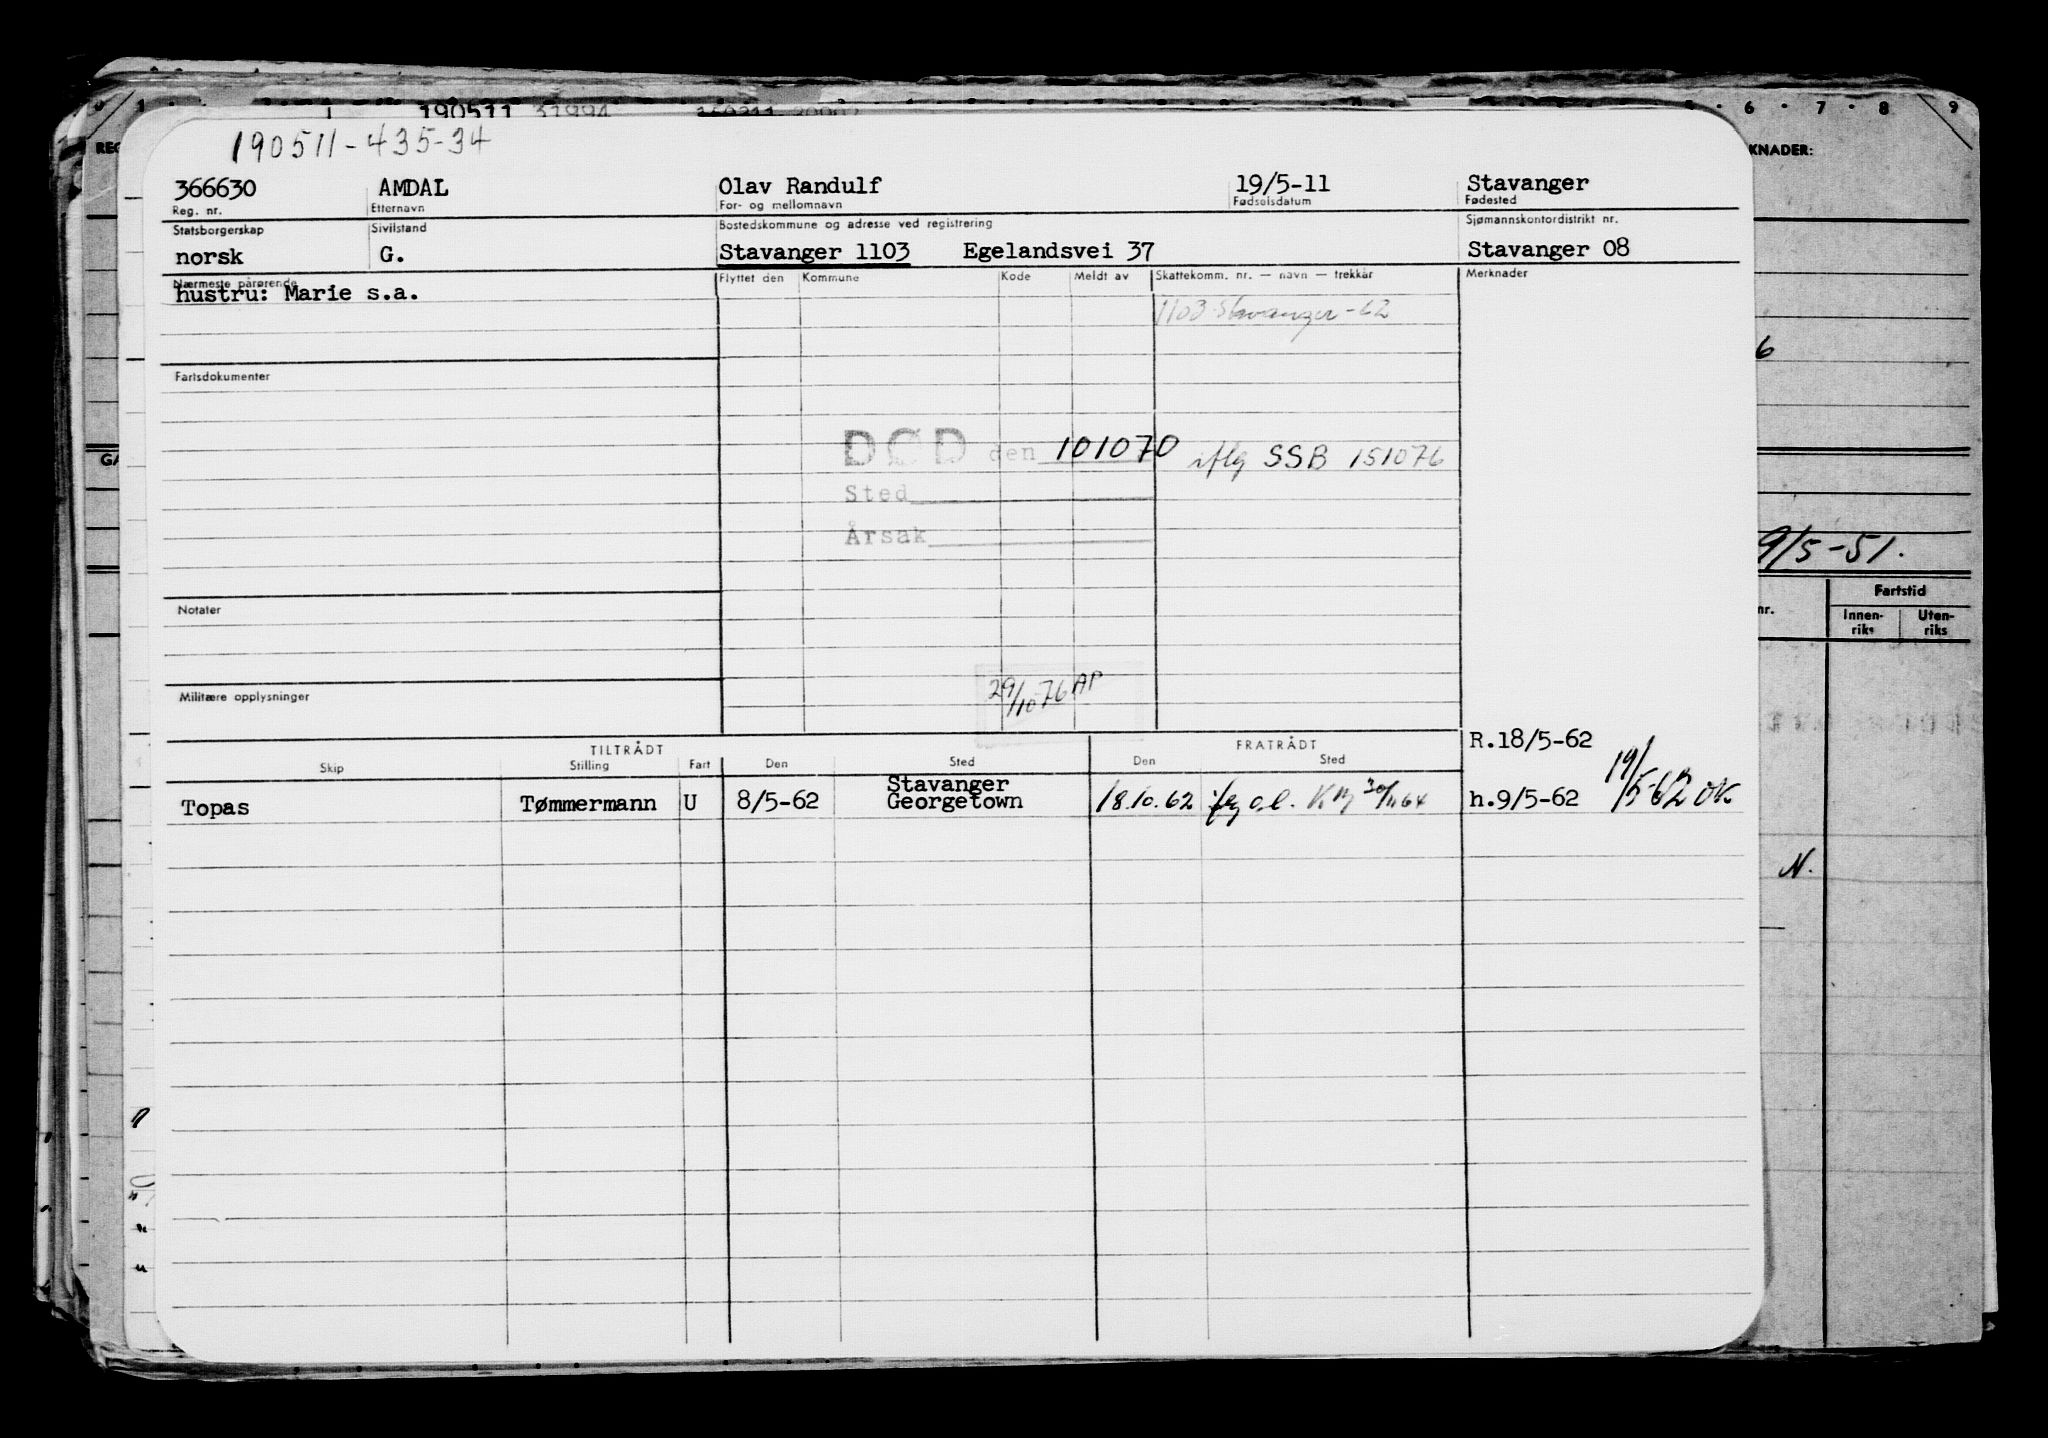 190511
190511-435-34
366630 AMDAL Olav Randulf 19/5-11 Stavanger
Reg. nr. Etternavn For- og mellomnavn Fødselsdatum Fødested
Statsborgerskap Sivilstand Bostedskommune og adresse ved registrering Sjømannskontordistrikt nr.
norsk G. Stavanger 1103 Egelandsvei 37 Stavanger 08
Nærmeste pårørende Flyttet den Kommune Kode Meldt av Skattekomm. nr. — navn — trekkår Merknader
hustru: Marie s.a.
1103 Stavanger-62
Fartsdokumenter
DØD den 101070 iflg SSB 151076
Sted
Årsak
Notater
Militære opplysninger
29/10-76 AP
R.18/5-62
TILTRÅDT FRATRÅDT
Skip Stilling Fart Den Sted Den Sted
Stavanger
Topas Tømmermann U 8/5-62 Georgetown 18.10.62 h.9/5-62 19/5-62 OK
5 6 7 8 9
KNADER:
6
9/5-51.
nr. Fartstid
Innen-riks Uten-riks
N.